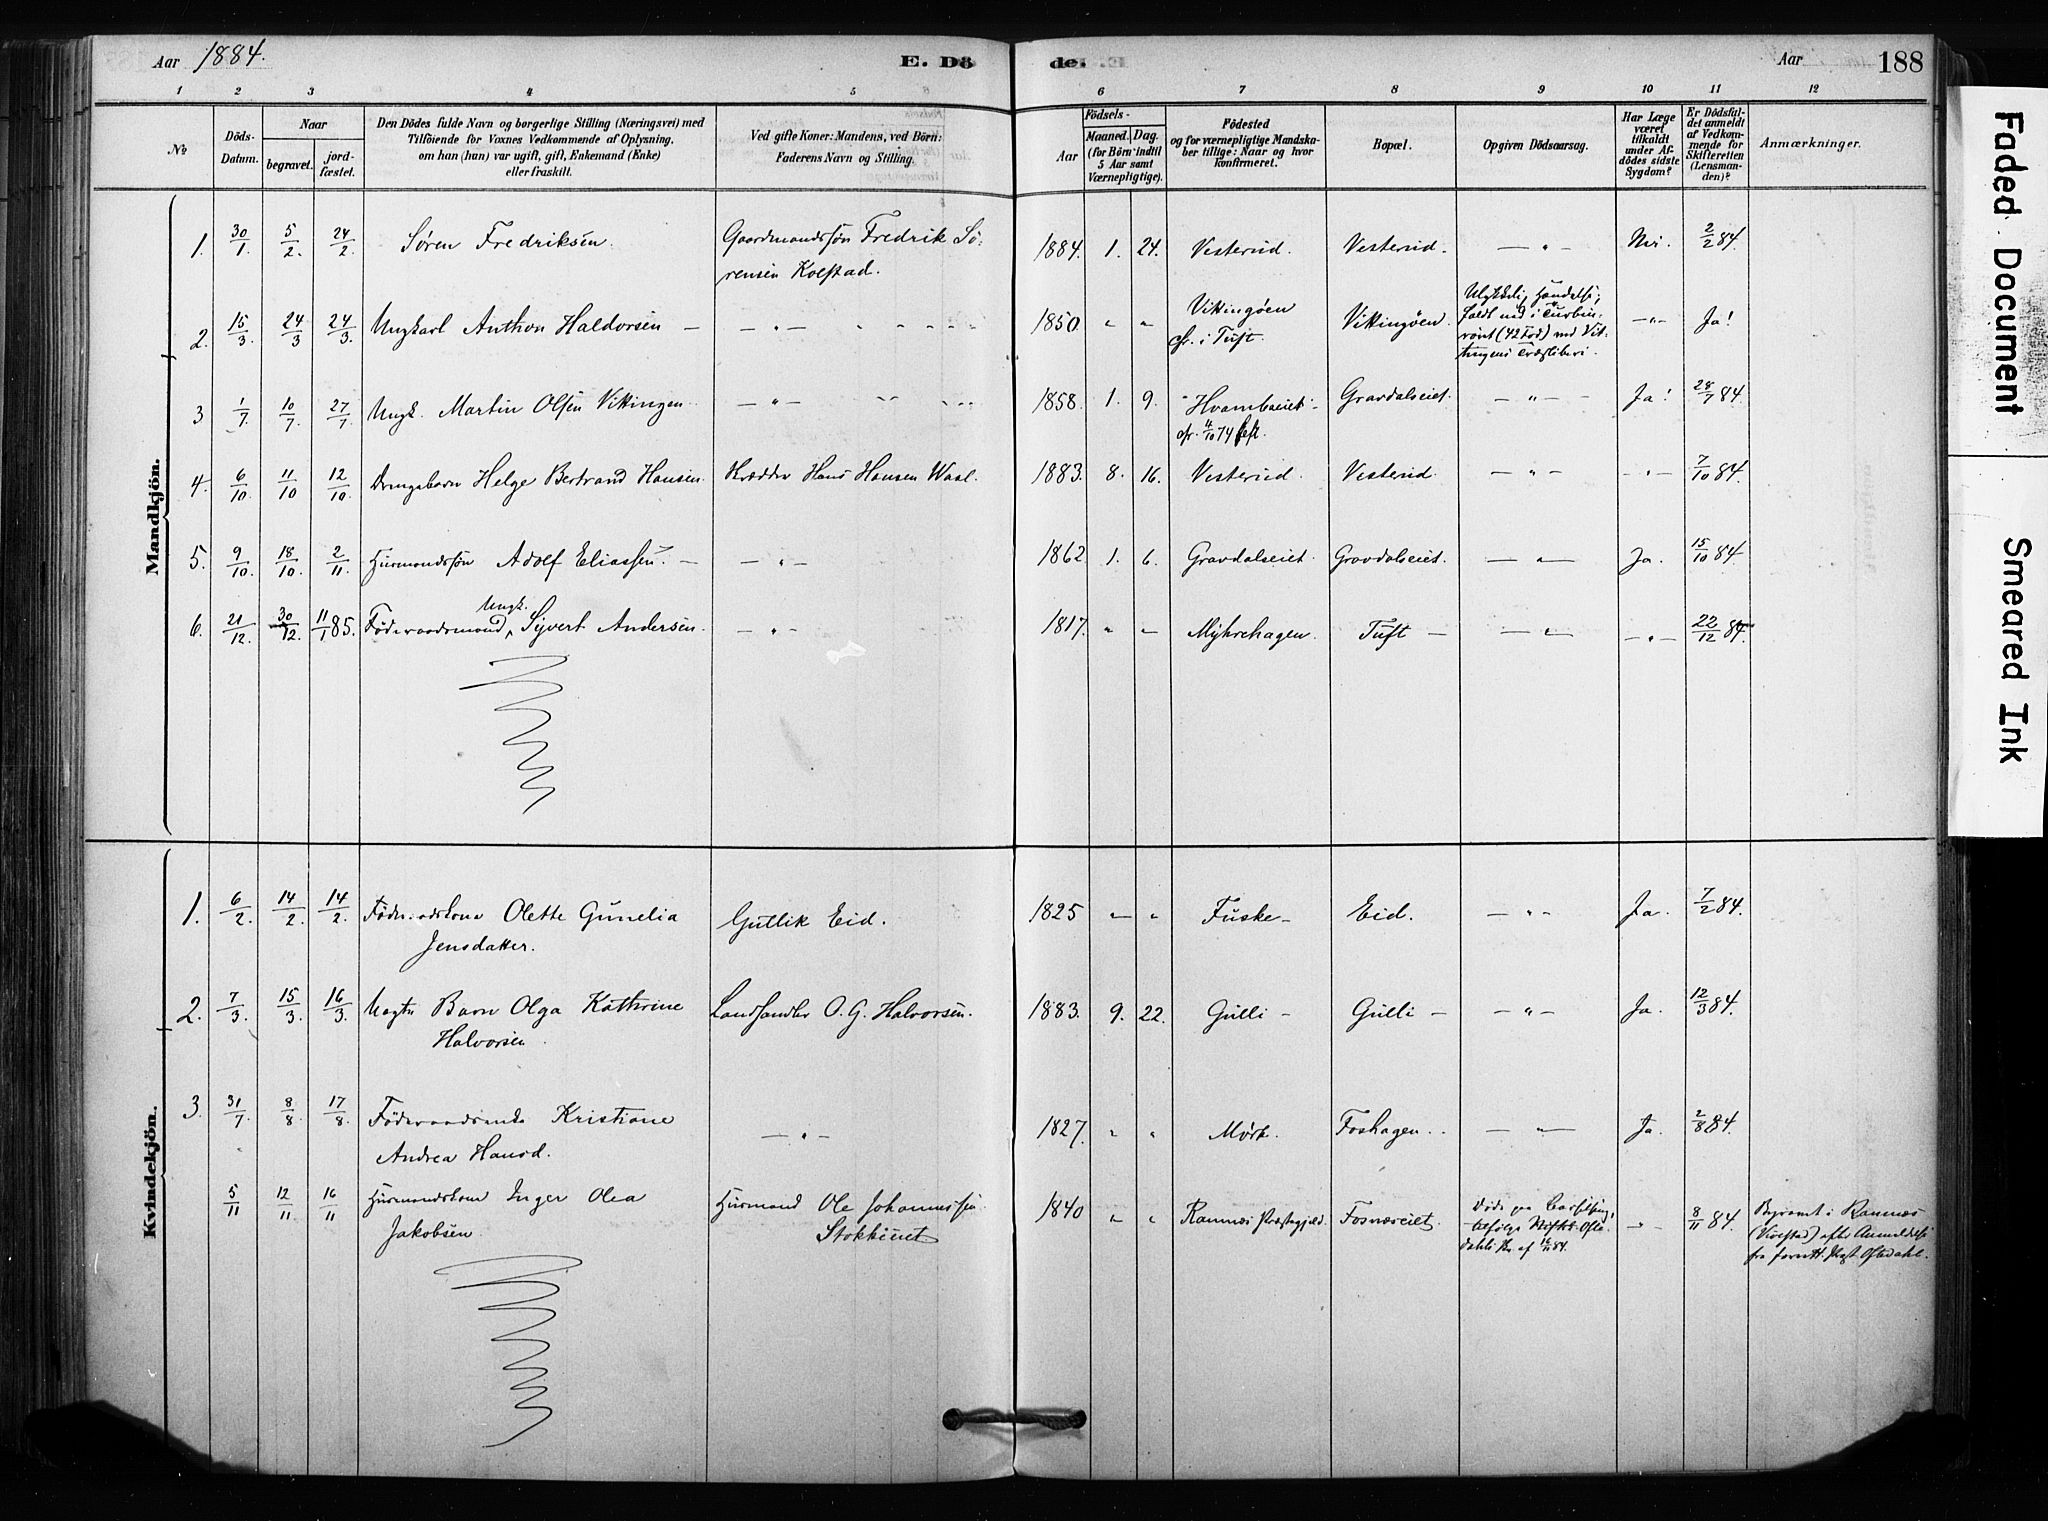 Aar 1884.
E. Dö
de: 
Aar
188
1 2 3 4 5 6 7 8 9 10 11 12
No
Döds-Datum.
Naar
begravet.
jord-fæstet.
Den Dödes fulde Navn og borgerlige Stilling (Næringsvei) med
Tilföiende for Voxnes Vedkommende af Oplysning,
om han (hun) var ugift, gift, Enkemand (Enke)
eller fraskilt.
Ved gifte Koner: Mandens, ved Börn:
Faderens Navn og Stilling.
Födsels-
Aar
Maaned.
Dag.
(for Börn indtil
5 Aar samt
Værnepligtige).
Födested
og for værnepligtige Mandska-
ber tillige: Naar og hvor
konfirmeret.
Bopæl.
Opgiven Dödsaarsag.
Har Læge
været
tilkaldt
under Af-
dödes sidste
Sygdom?
Er Dödsfal-
det anmeldt
af Vedkom-
mende for
Skifteretten
(Lensman-
den)?
Anmærkninger.
Mandkjön.
1. 30/1 5/2 24/2 Søren Fredriksen. Gaardmandssøn Fredrik Sø-
rensen Kolstad.
1884. 1. 24. Vesterud. Vesterud. — " — Nei. 2/2 84.
2. 15/3 24/3 24/3 Ungkarl Anthon Haldorsen — — " —
1850 " " Vikingøen
cfr. i Tuft.
Vikingøen.
Ulykkelig Hændelse;
faldt ned i Turbin-
røret (42 Fod) ved Vit-
tingens Træsliberi.
— " — Ja!
3 1/7 10/7 27/7 Ungk. Martin Olsen Vittingen. — " —
1858. 1. 9. Hvambseiet
cfr. 4/10 74
Gravdalseiet. — " — Ja! 28/7 84.
4. 6/10 11/10 12/10 Drengebarn Helge Bertrand Hansen. Skrædder Hans Hansen Waal.
1883. 8. 16. Vesterud. Vesterud. — " — — " — 7/10 84.
5. 9/10 18/10 2/11 Husmandssøn Adolf Eliassen. — — " —
1862 1. 6. Gravdalseiet. Gravdalseiet. — " — Ja. 15/10 84.
6. 21/12 30/12 11/1 85. Føderaadsmand, Ungk. Sijvert Andersen. — " —
1817. " " Myhrehagen. Tuft — — " — — " — 22/12 84.
Kvindekjön.
1. 6/2 14/2 14/2 Olette Gunelia
Jensdatter.
Gullik Eid.
1825 " " Fuske — Eid. — " — Ja. 7/2 84.
2. 7/3 15/3 16/3 Barn Olga Kathrine
Halvorsen.
Landhandler O. G. Halvorsen.
1883. 9. 22. Gulli — Gulli — — " — Ja. 12/3 84.
3. 31/7 8/8 17/8 Føderaadsenke Kristiane
Andrea Hansd.
— " —
1827. " " Mørk. Foshagen. — " — Ja. 2/8 84.
5/11 12/11 16/11 Husmandskone Inger Olea
Jakobsen.
Husmand Ole Johannessen
1840 " " Ramnæs Præstegjeld. Fosnæseiet.
Døde paa Barselseng,
— " — 8/11 84.
Begravet i Ramnæs
Faded Document
Smeared Ink